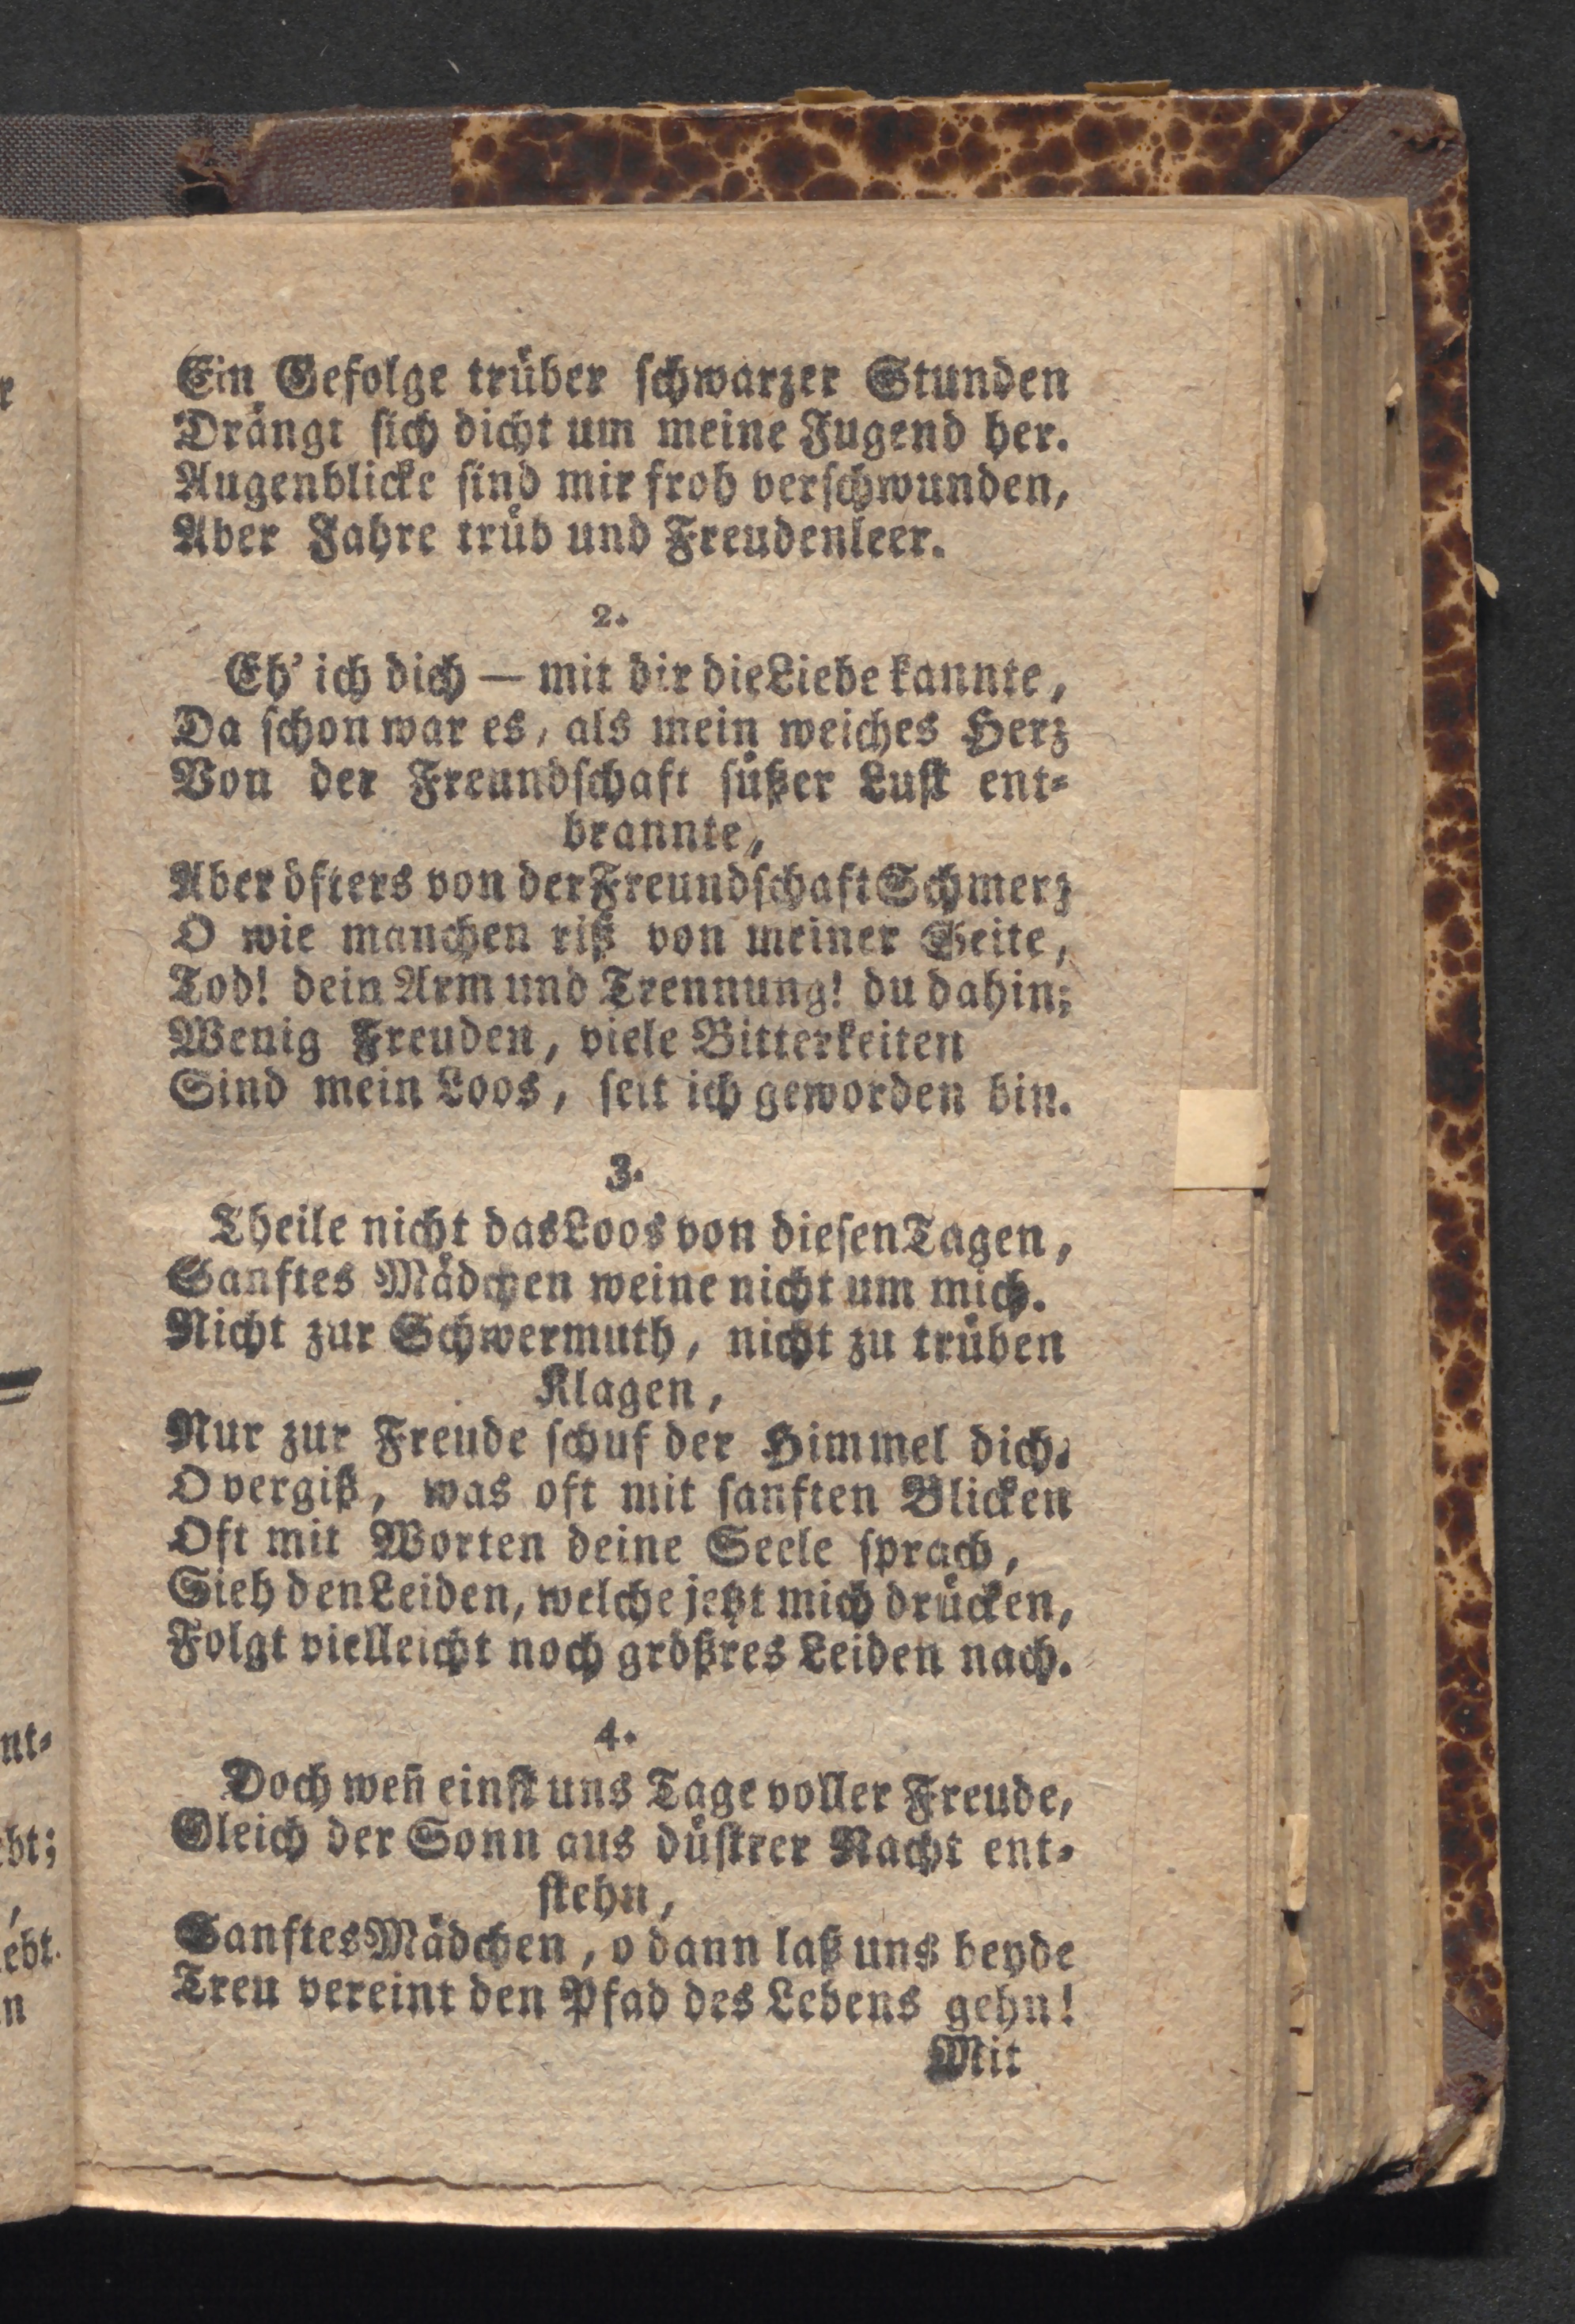 Ein Gefolge trüber schwarzer Stunden
Drängt sich dicht um meine Jugend her.
Augenblicke sind mir froh verschwunden,
Aber Jahre trüb und Freudenleer.
2.
Eh' ich dich — mit dir die Liebe kannte,
Da schon war es, als mein weiches Herz
Von der Freundschaft süßer Lust ent-
brannte,
Aber öfters von der Freundschaft Schmerz
O wie manchen riß von meiner Seite,
Tod! dein Arm und Trennung! du dahin;
Wenig Freuden, viele Bitterkeiten
Sind mein Loos, seit ich geworden bin.
3.
Theile nicht das Loos von diesen Tagen,
Sanftes Mädchen weine nicht um mich.
Nicht zur Schwermuth, nicht zu trüben
Klagen,
Nur zur Freude schuf der Himmel dich.
O vergiß, was oft mit sanften Blicken
Oft mit Worten deine Seele sprach,
Sieh den Leiden, welche jetzt mich drücken,
Folgt vielleicht noch größres Leiden nach.
4.
Doch weñ einst uns Tage voller Freude,
Gleich der Sonn aus düstrer Nacht ent-
stehn,
Sanftes Mädchen, o dann laß uns beyde
Treu vereint den Pfad des Lebens gehn!
Mit